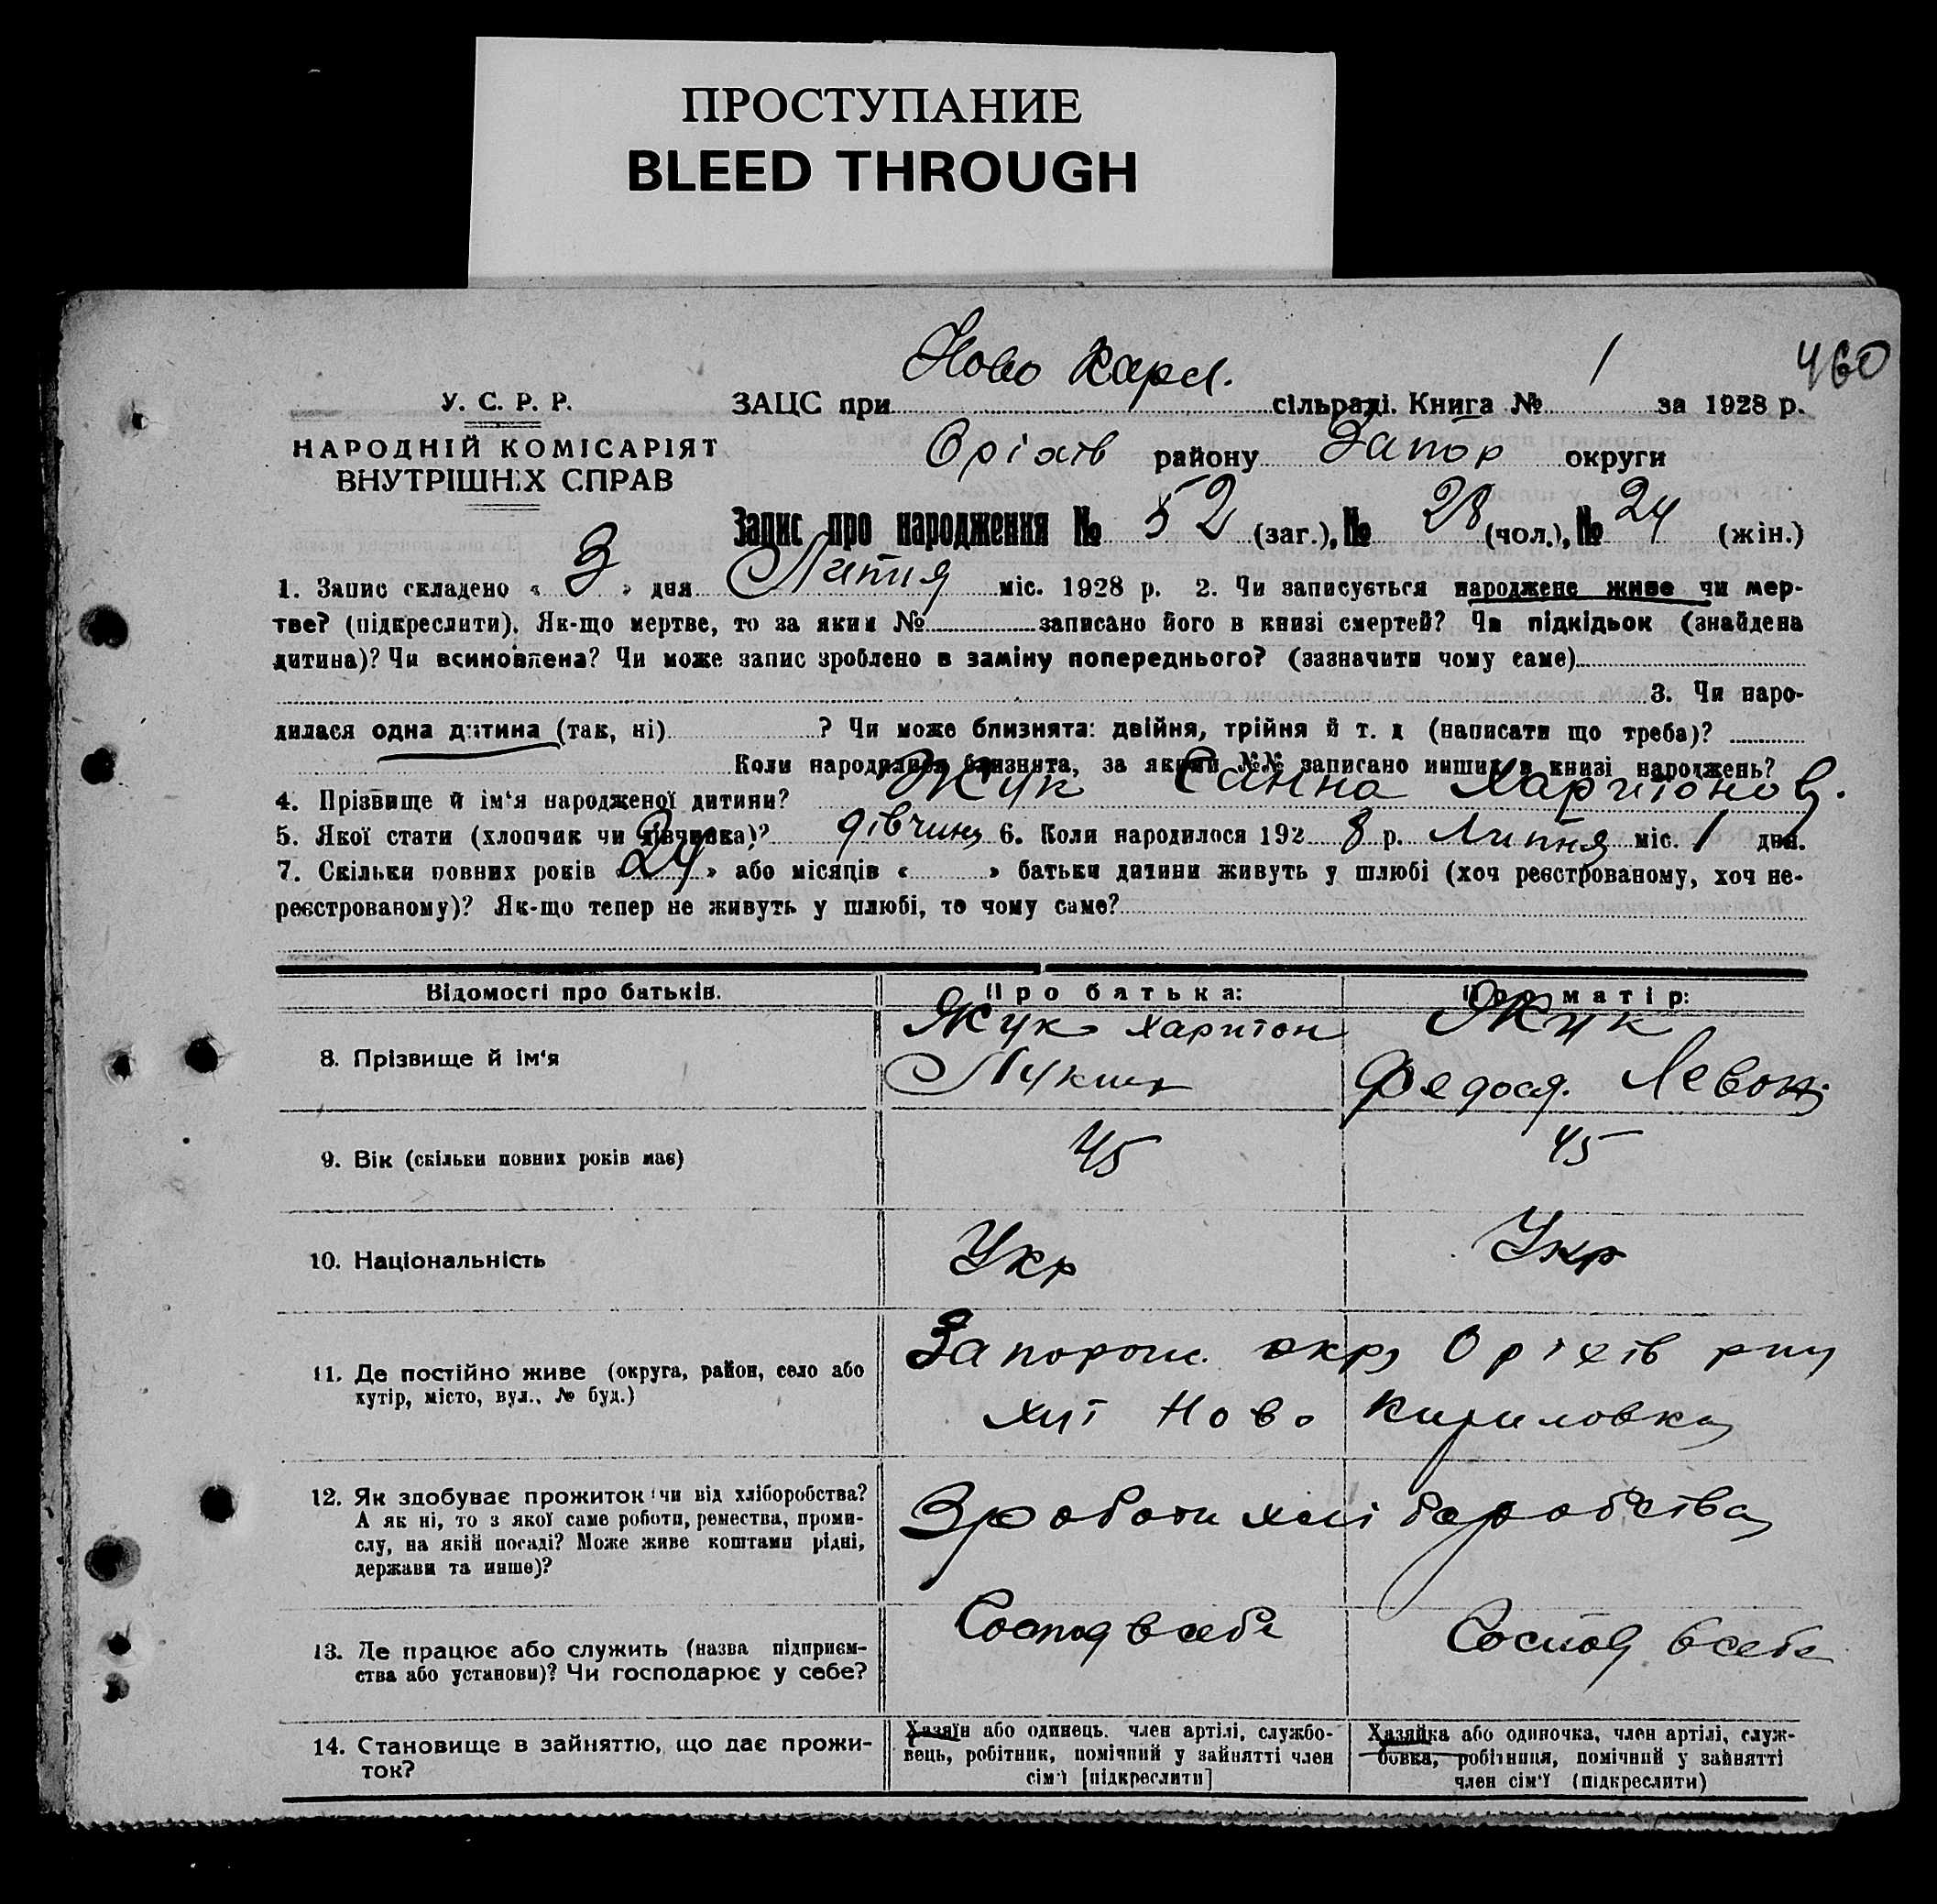 ПРОСТУПАНИЕ
BLEED THROUGH
460
У. С. Р. Р.
НАРОДНІЙ КОМІСАРІЯТ
ВНУТРІШНІХ СПРАВ
ЗАЦС при Ново Карл. сільраді. Книга № 1 за 1928 р.
Оріхів району Запор округи
Запис про народження № 52 (заг.), № 28 (чол.), № 24 (жін.)
1. Запис складено « 3 » дня Липня міс. 1928 р. 2. Чи записується народжене живе чи мер-
тве? (підкреслити). Як-що мертве, то за яким № записано його в книзі смертей? Чи підкідьок (знайдена
дитина)? Чи всиновлена? Чи може запис зроблено в заміну попереднього? (зазначити чому саме)
3. Чи наро-
дилася одна дитина (так, ні) ? Чи може близнята: двійня, трійня й т. д (написати що треба)?
Коли народилися близнята, за якими №№ записано инших в книзі народжень?
4. Прізвище й ім‘я народженої дитини? Жук Ганна Харитонов.
5. Якої стати (хлопчик чи дівчинка)? дівчина 6. Коли народилося 192 8 р. Липня міс. 1 дня.
7. Скільки повних років « 24 » або місяців « » батьки дитини живуть у шлюбі (хоч реєстрованому, хоч не-
реєстрованому)? Як-що тепер не живуть у шлюбі, то чому саме?
Відомості про батьків. Про батька: Про матір:
8. Прізвище й ім‘я Жук Харитон Жук
Лукич Федося. Левон.
9. Вік (скільки повних років має) 45 45
10. Національність Укр Укр
11. Де постійно живе (округа, район, село або
хутір, місто, вул., № буд.)
Запорож. окр Оріхів рну
хут Ново Кириловка
12. Як здобуває прожиток: чи від хліборобства?
А як ні, то з якої саме роботи, ремества, проми-
слу, на якій посаді? Може живе коштами рідні,
держави та инше)?
З роботи хліборобства
13. Де працює або служить (назва підприєм-
ства або установи)? Чи господарює у себе?
Господ в себе Господ в себе
14. Становище в зайняттю, що дає прожи-
ток?
Хазяїн або одинець. член артілі, службо-
вець, робітник, помічний у зайнятті член
сім‘ї [підкреслити]
Хазяйка або одиночка, член артілі, служ-
бовка, робітниця, помічний у зайнятті
член сім‘ї (підкреслити)